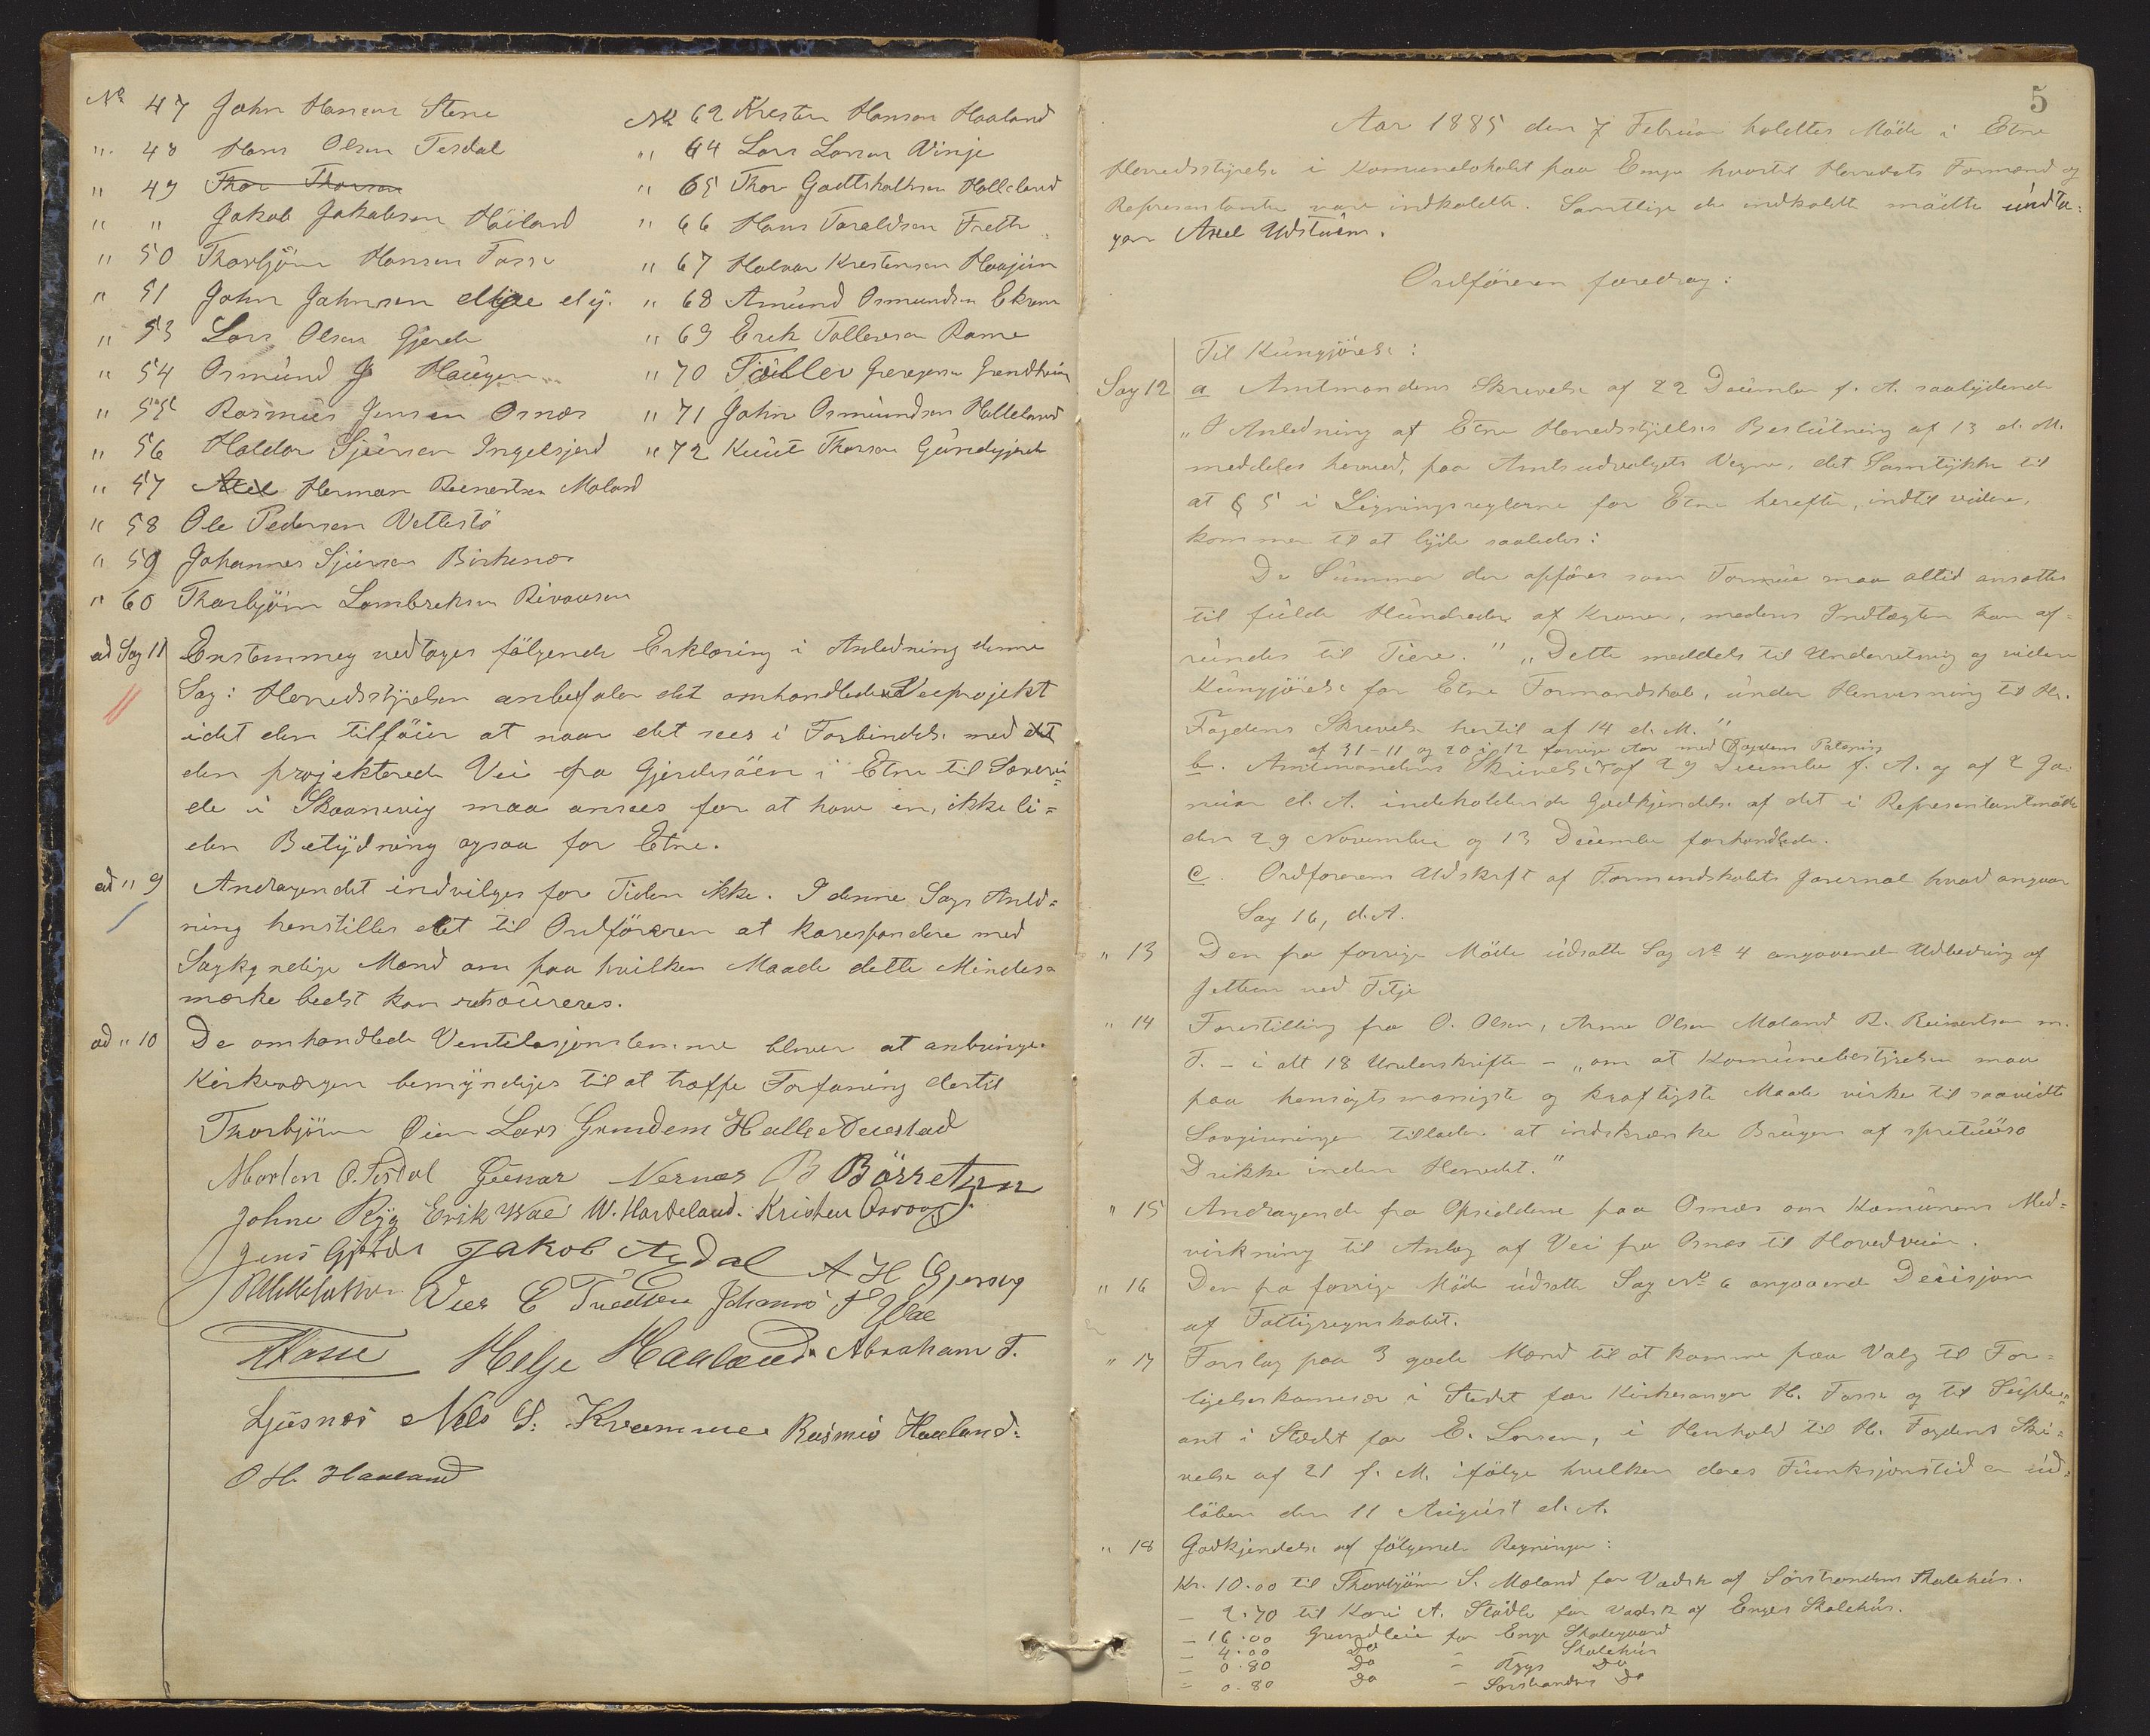 No 47 John Hansen Stene
" 48 Hans Olsen Tesdal
" 49 Thor Thorsen
" " Jakob Jakobsen Höiland
" 50 Thorbjörn Hansen Fosse
" 51 John Johnsen
" 53 Lars Olsen Gjerde
" 54 Osmund J Haugen
" 55 Rasmus Jensen Osnæs
" 56 Haldor Sjursen
" 57 Herman Reinertsen Moland
" 58 Ole Pedersen Vettestö
" 59 Johannes Sjursen Birkenes
" 60 Thorbjörn Lambreksen
No 62 Kristen Hanson Haaland
" 64 Lars Larsen Vinje
" 65 Thor Godtskalksen Halleland
" 66 Hans Taraldsen Frette
" 67 Halvor Kristensen Haajem
" 68 Amund Osmundsen Ekrene
" 69 Erik Tollevsen Rame
" 70 Tollev Gregersen Grindheim
" 71 John Osmundsen Halleland
" 72 Knut Thorsen Gundegjerde
ad Sag 11 Enstemmig vedtages fölgende Erklæring i Anledning denne
Sag: Herredsstyrelsen anbefaler det omhandlede Veiprojekt
idet den tilföier at naar det sees i Forbindelse med
den projekterede Vei fra Gjerdesöen i Etne til
de i Skaanevig maa ansees for at have en, ikke li=
den Betydning ogsaa for Etne.
ad " 9 Andragendet indvilges for Tiden ikke. I denne Sags Anled=
ning henstilles det til Ordföreren at korespondere med
Sagkyndige Mænd om paa hvilken Maade dette Mindes=
mærke bedst kan restoureres.
ad " 10 De omhandlede Ventilasjonslemme bliver at anbringe.
Kirkeværgen bemyndiges til at træffe Forfaning dertil
Thorbjörn Öien Lars Grindem Halle
Morten O. Tesdal Gunar Nernæs B Börretzen
Johne Ryg Erik Wae W. Hardeland. Kristen Osvaag.
Jens Gjerde Jakob A H Gjersvig
E Tvedten Johannes
Fosse Helje Haaland Abraham T.
Ljusnes Nels S. Kvamme Rasmus Haaland.
O H. Haaland
5
Aar 1885 den 7 Februar holdtes Möde i Etne
Herredsstyrelse i Komunelokalet paa Enge hvortil Herredets Formænd og
Representanter vare indkaldte. Samtlige de indkaldte mödte undta=
gen Axel Udstuen.
Ordföreren foredrog:
Til Kungjörelse:
Sag 12 a Amtmandens Skrivelse af 22 December f. A. saalydende
"I Anledning af Etne Herredsstyrelses Beslutning af 13 d. M.
meddeles herved, paa Amtsudvalgets Vegne, det Samtykke til
at § 5 i Ligningsreglerne for Etne herefter, indtil videre,
kommer til at lyde saaledes:
De Summer der opföres som Formue maa altid ansættes
til fulde Hundreder af Kroner, medens Indtægten kan af=
rundes til Tiere." "Dette meddels til Underretning og videre
Kungjörelse for Etne Formandskab, under Henvisning til Hr.
Fogdens Skrivelse hertil af 14 d. M."
af 31-11 og 20 i 12 forrige Aar med Fogdens Pategning
b. Amtmandens Skrivelser af 29 December f. A. og af 2 Ja=
nuar d. A. indeholdende Godkjendelse af det i Representantmöde
den 29 November og 13 December forhandlede.
c. Ordförerens Udskrift af Formandskabets Journal hvad angaar
Sag 16, d. A.
" 13 Den fra forrige Möde udsatte Sag No 4 angaaende Udbedring af
Jetteen ved Fitje
" 14 Forestilling fra O. Olsen, Arne Olsen Moland R. Reinertsen m.
F. - i alt 18 Underskrifter - "om at Komunebestyrelsen maa
paa hensigtsmæssigste og kraftigste Maade virke til saavidt
Lovgivningen tillader at indskrænke Brugen af spretuöse
Drikke inden Herredet."
" 15 Andragende fra Opsidderne paa Osnæs om Komunens Med=
virkning til Anlæg af Vei fra Osnæs til Hovedveien.
" 16 Den fra forrige Möde udsatte Sag No 6 angaaende Decisjon
af Fattigregnskabet.
" 17 Forslag paa 3 gode Mænd til at komme paa Valg til For=
ligelseskomesær i Stedet for Kirkesanger H. Fosse og til Suplee=
ant i Stedet for E. Larsen, i Henhold til Hr. Fogdens Skri=
velse af 21 f. M. ifölge hvilken deres Funksjonstid er ud=
löben den 11 August d. A.
" 18 Godkjendelse af fölgende Regninger:
Kr. 10.00 til Thorbjörn S. Moland for Vadsk af Sörstrandens Skolehus.
- 2.70 til Kari A. Stödle for Vadsk af Enges Skolehus.
- 16.00 Grundleie for Enge Skolegaard
- 4.00 Do - Skolehus
- 0.80 Do - Rygs Do
- 0.80 Do - Sörstrandens Do